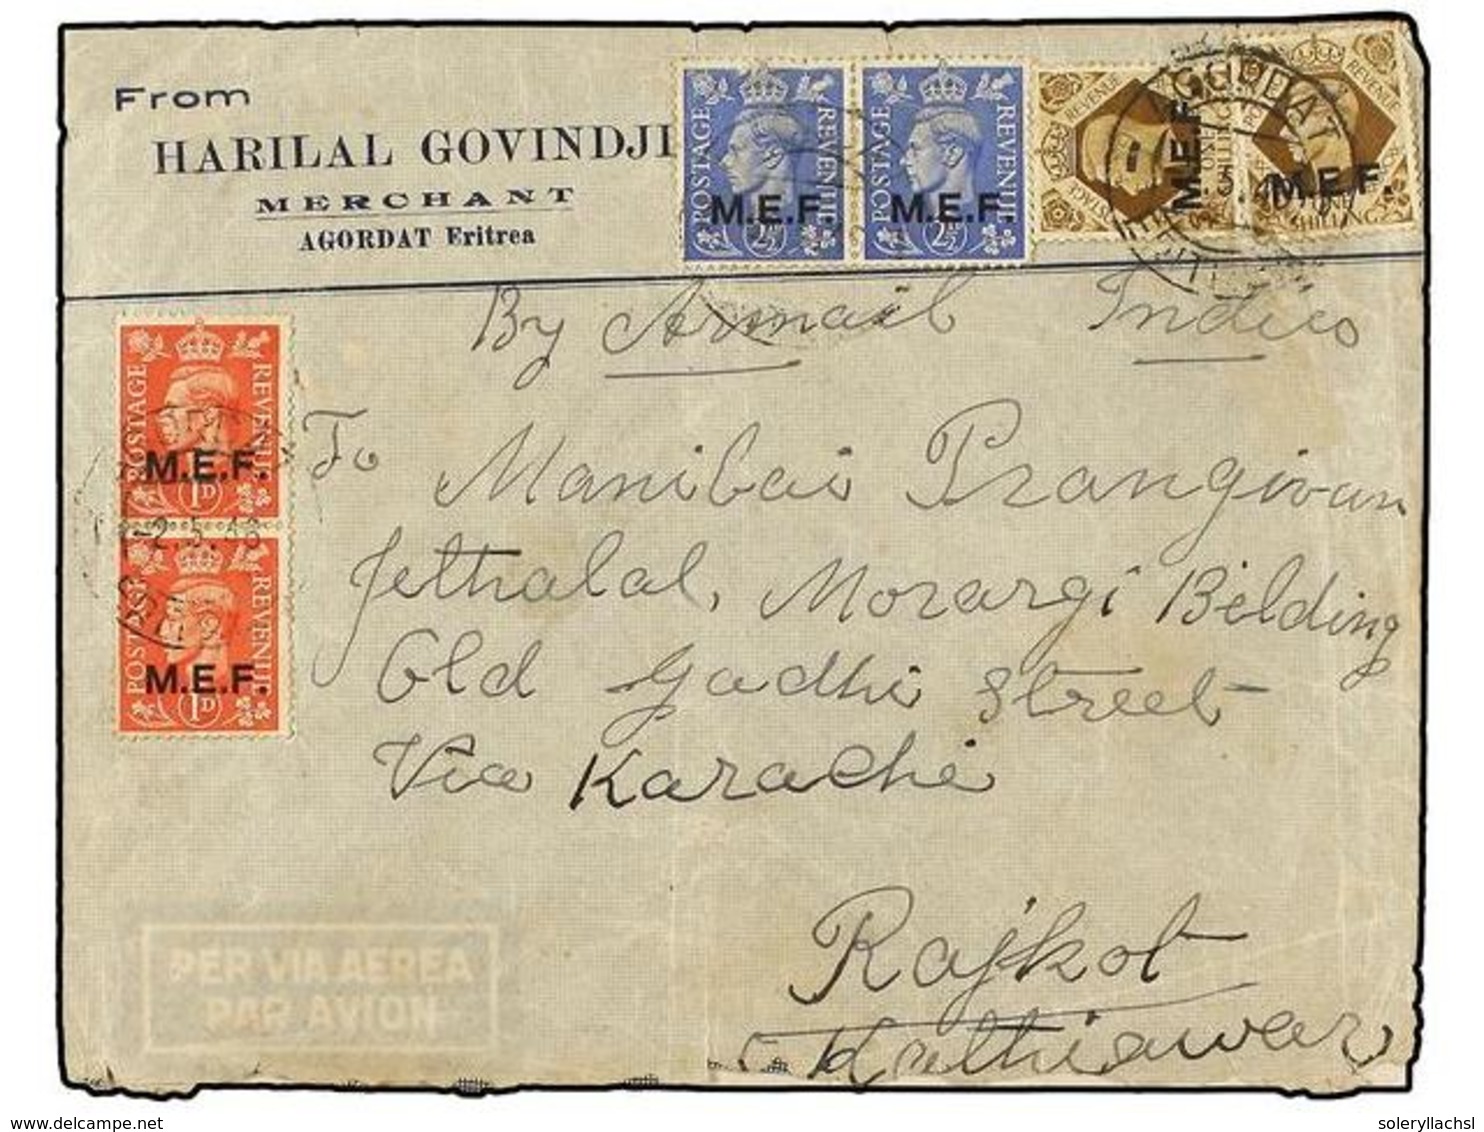 From
HARILAL GOVINDJI
MERCHANT
AGORDAT Eritrea
POSTAGE REVENUE
M.E.F.
2½D
POSTAGE REVENUE
M.E.F.
2½D
POSTAGE REVENUE
M.E.F.
ONE SHILLING
REVENUE
M.E.F.
SHILLING
AGORDAT
By Airmail India
POSTAGE REVENUE
M.E.F.
1D
-2.5.48
POSTAGE REVENUE
M.E.F.
1D
To Manibai Prangivan
Jethalal, Morargi Bilding
Old Gadhi Street
Via Karachi
Rajkot
Kathiawar
PER VIA AEREA
PAR AVION
www.delcampe.net
soleryllachsl